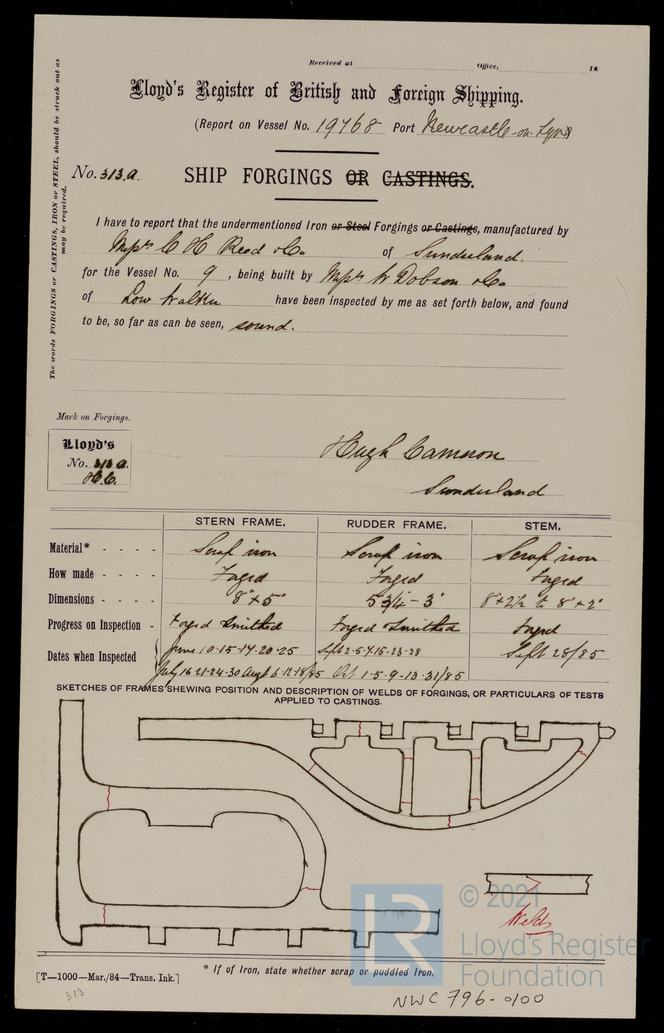 Received at Office, 18
Lloyd's Register of British and Foreign Shipping.
(Report on Vessel No. 19768 Port Newcastle-on-Tyne)
No. 313.a. SHIP FORGINGS OR CASTINGS.
The words FORGINGS or CASTINGS, IRON or STEEL, should be struck out as
may be required.
I have to report that the undermentioned Iron or Steel Forgings or Castings, manufactured by
Messrs C H Reed & Co of Sunderland.
for the Vessel No. 9, being built by Messrs W Dobson & Co
of Low Walker have been inspected by me as set forth below, and found
to be, so far as can be seen, sound.
Mark on Forgings.
Lloyd's
No. 313 a.
H.C.
Hugh Cameron
Sunderland
STERN FRAME. RUDDER FRAME. STEM.
Material* - - - - Scrap iron Scrap iron Scrap iron
How made - - - - Forged Forged Forged
Dimensions - - - - 8" × 5" 5 3/4 - 3" 8" × 2 1/2 to 8" × 2"
Progress on Inspection - Forged & Smithed Forged & Smithed Forged
Dates when Inspected June 10-15-17-20-25 Sept 28/85
July 16-21-24-30 Oct 1-5-9-13-31/85
SKETCHES OF FRAMES SHEWING POSITION AND DESCRIPTION OF WELDS OF FORGINGS, OR PARTICULARS OF TESTS
APPLIED TO CASTINGS.
Welds
© 2021
LR
Lloyd's Register
Foundation
* If of Iron, state whether scrap or puddled Iron.
[T—1000—Mar./84—Trans. Ink.]
313
NWC 796-0100